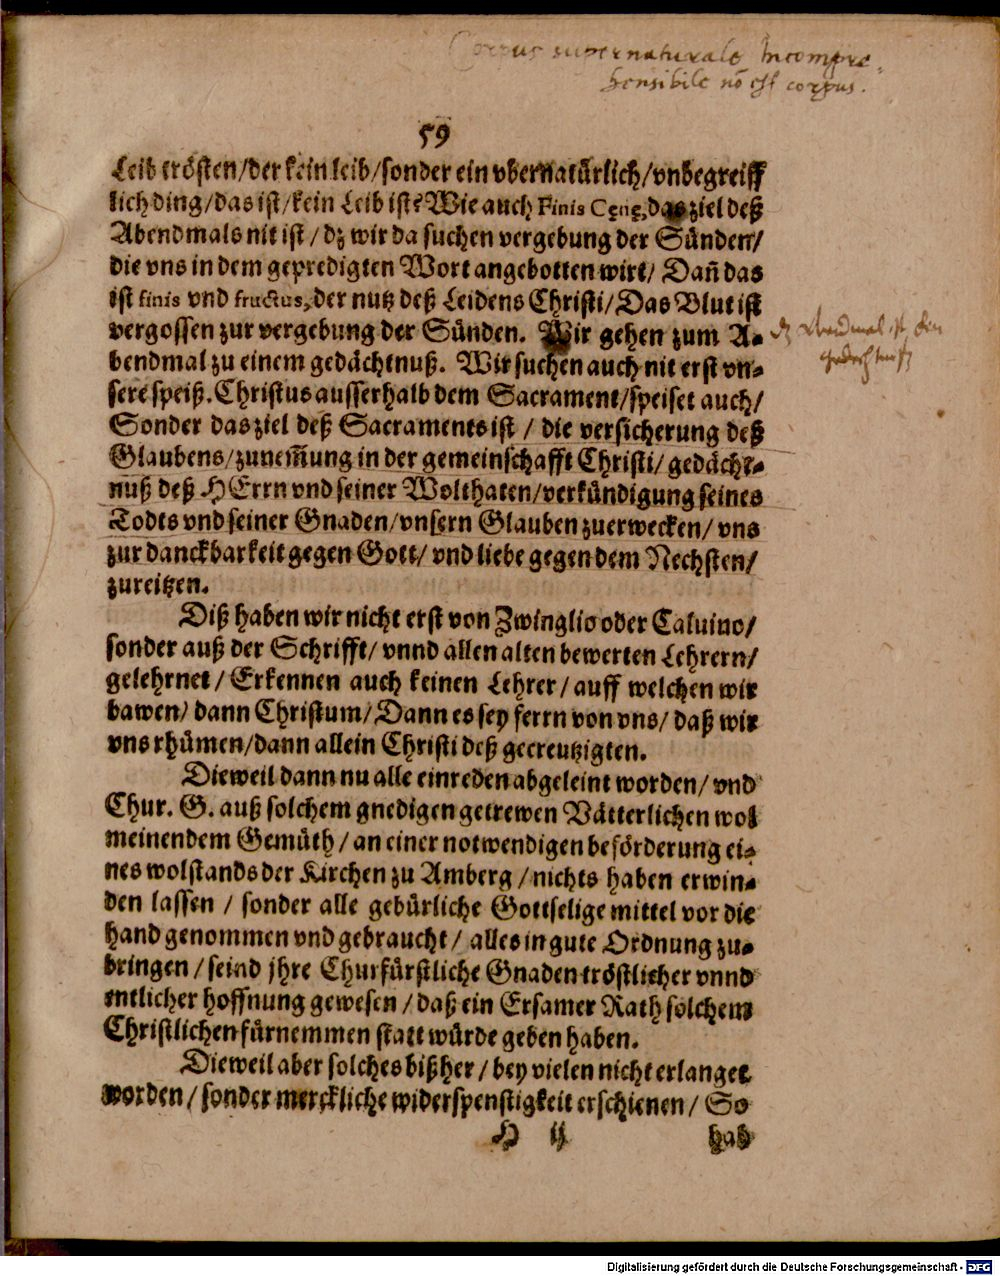 Corpus supernaturale Incompre-
hensibile nō est corpus.
59
Leib trösten/der kein leib/sonder ein vbernatürlich/vnbegreiff
lich ding/das ist/kein Leib ist? Wie auch Finis Cęnę, das ziel deß
Abendmals nit ist/dz wir da suchen vergebung der Sünden/
die vns in dem gepredigten Wort angebotten wirt/ Dañ das
ist finis vnd fructus, der nutz deß Leidens Christi/Das Blut ist
vergossen zur vergebung der Sünden. Wir gehen zum A-
bendmal zu einem gedächtnuß. Wir suchen auch nit erst vn-
sere speiß. Christus ausserhalb dem Sacrament/speiset auch/
Sonder das ziel deß Sacraments ist/ die versicherung deß
Glaubens/zunem̃ung in der gemeinschafft Christi/gedächt-
nuß deß HErrn vnd seiner Wolthaten/verkündigung seines
Todts vnd seiner Gnaden/vnsern Glauben zuerwecken/ vns
zur danckbarkeit gegen Gott/ vnd liebe gegen dem Nechsten/
zureitzen.
dz Abendmal ist
gedechtnuß
Diß haben wir nicht erst von Zwinglio oder Caluino/
sonder auß der Schrifft/ vnnd allen alten bewerten Lehrern/
gelehrnet/ Erkennen auch keinen Lehrer/ auff welchen wir
bawen/ dann Christum/ Dann es sey ferrn von vns/ daß wir
vns rhümen/dann allein Christi deß gecreutzigten.
Dieweil dann nu alle einreden abgeleint worden/ vnd
Chur. G. auß solchem gnedigen getrewen Vätterlichen wol
meinendem Gemüth/ an einer notwendigen beförderung ei-
nes wolstands der Kirchen zu Amberg/ nichts haben erwin-
den lassen/ sonder alle gebürliche Gottselige mittel vor die
hand genommen vnd gebraucht/ alles in gute Ordnung zu-
bringen/ seind jhre Churfürstliche Gnaden tröstlicher vnnd
entlicher hoffnung gewesen/ daß ein Ersamer Rath solchem
Christlichen fürnemmen statt würde geben haben.
Dieweil aber solches bißher/ bey vielen nicht erlanget
worden/ sonder merckliche widerspenstigkeit erschienen/ So
H ij hab
Digitalisierung gefördert durch die Deutsche Forschungsgemeinschaft - DFG